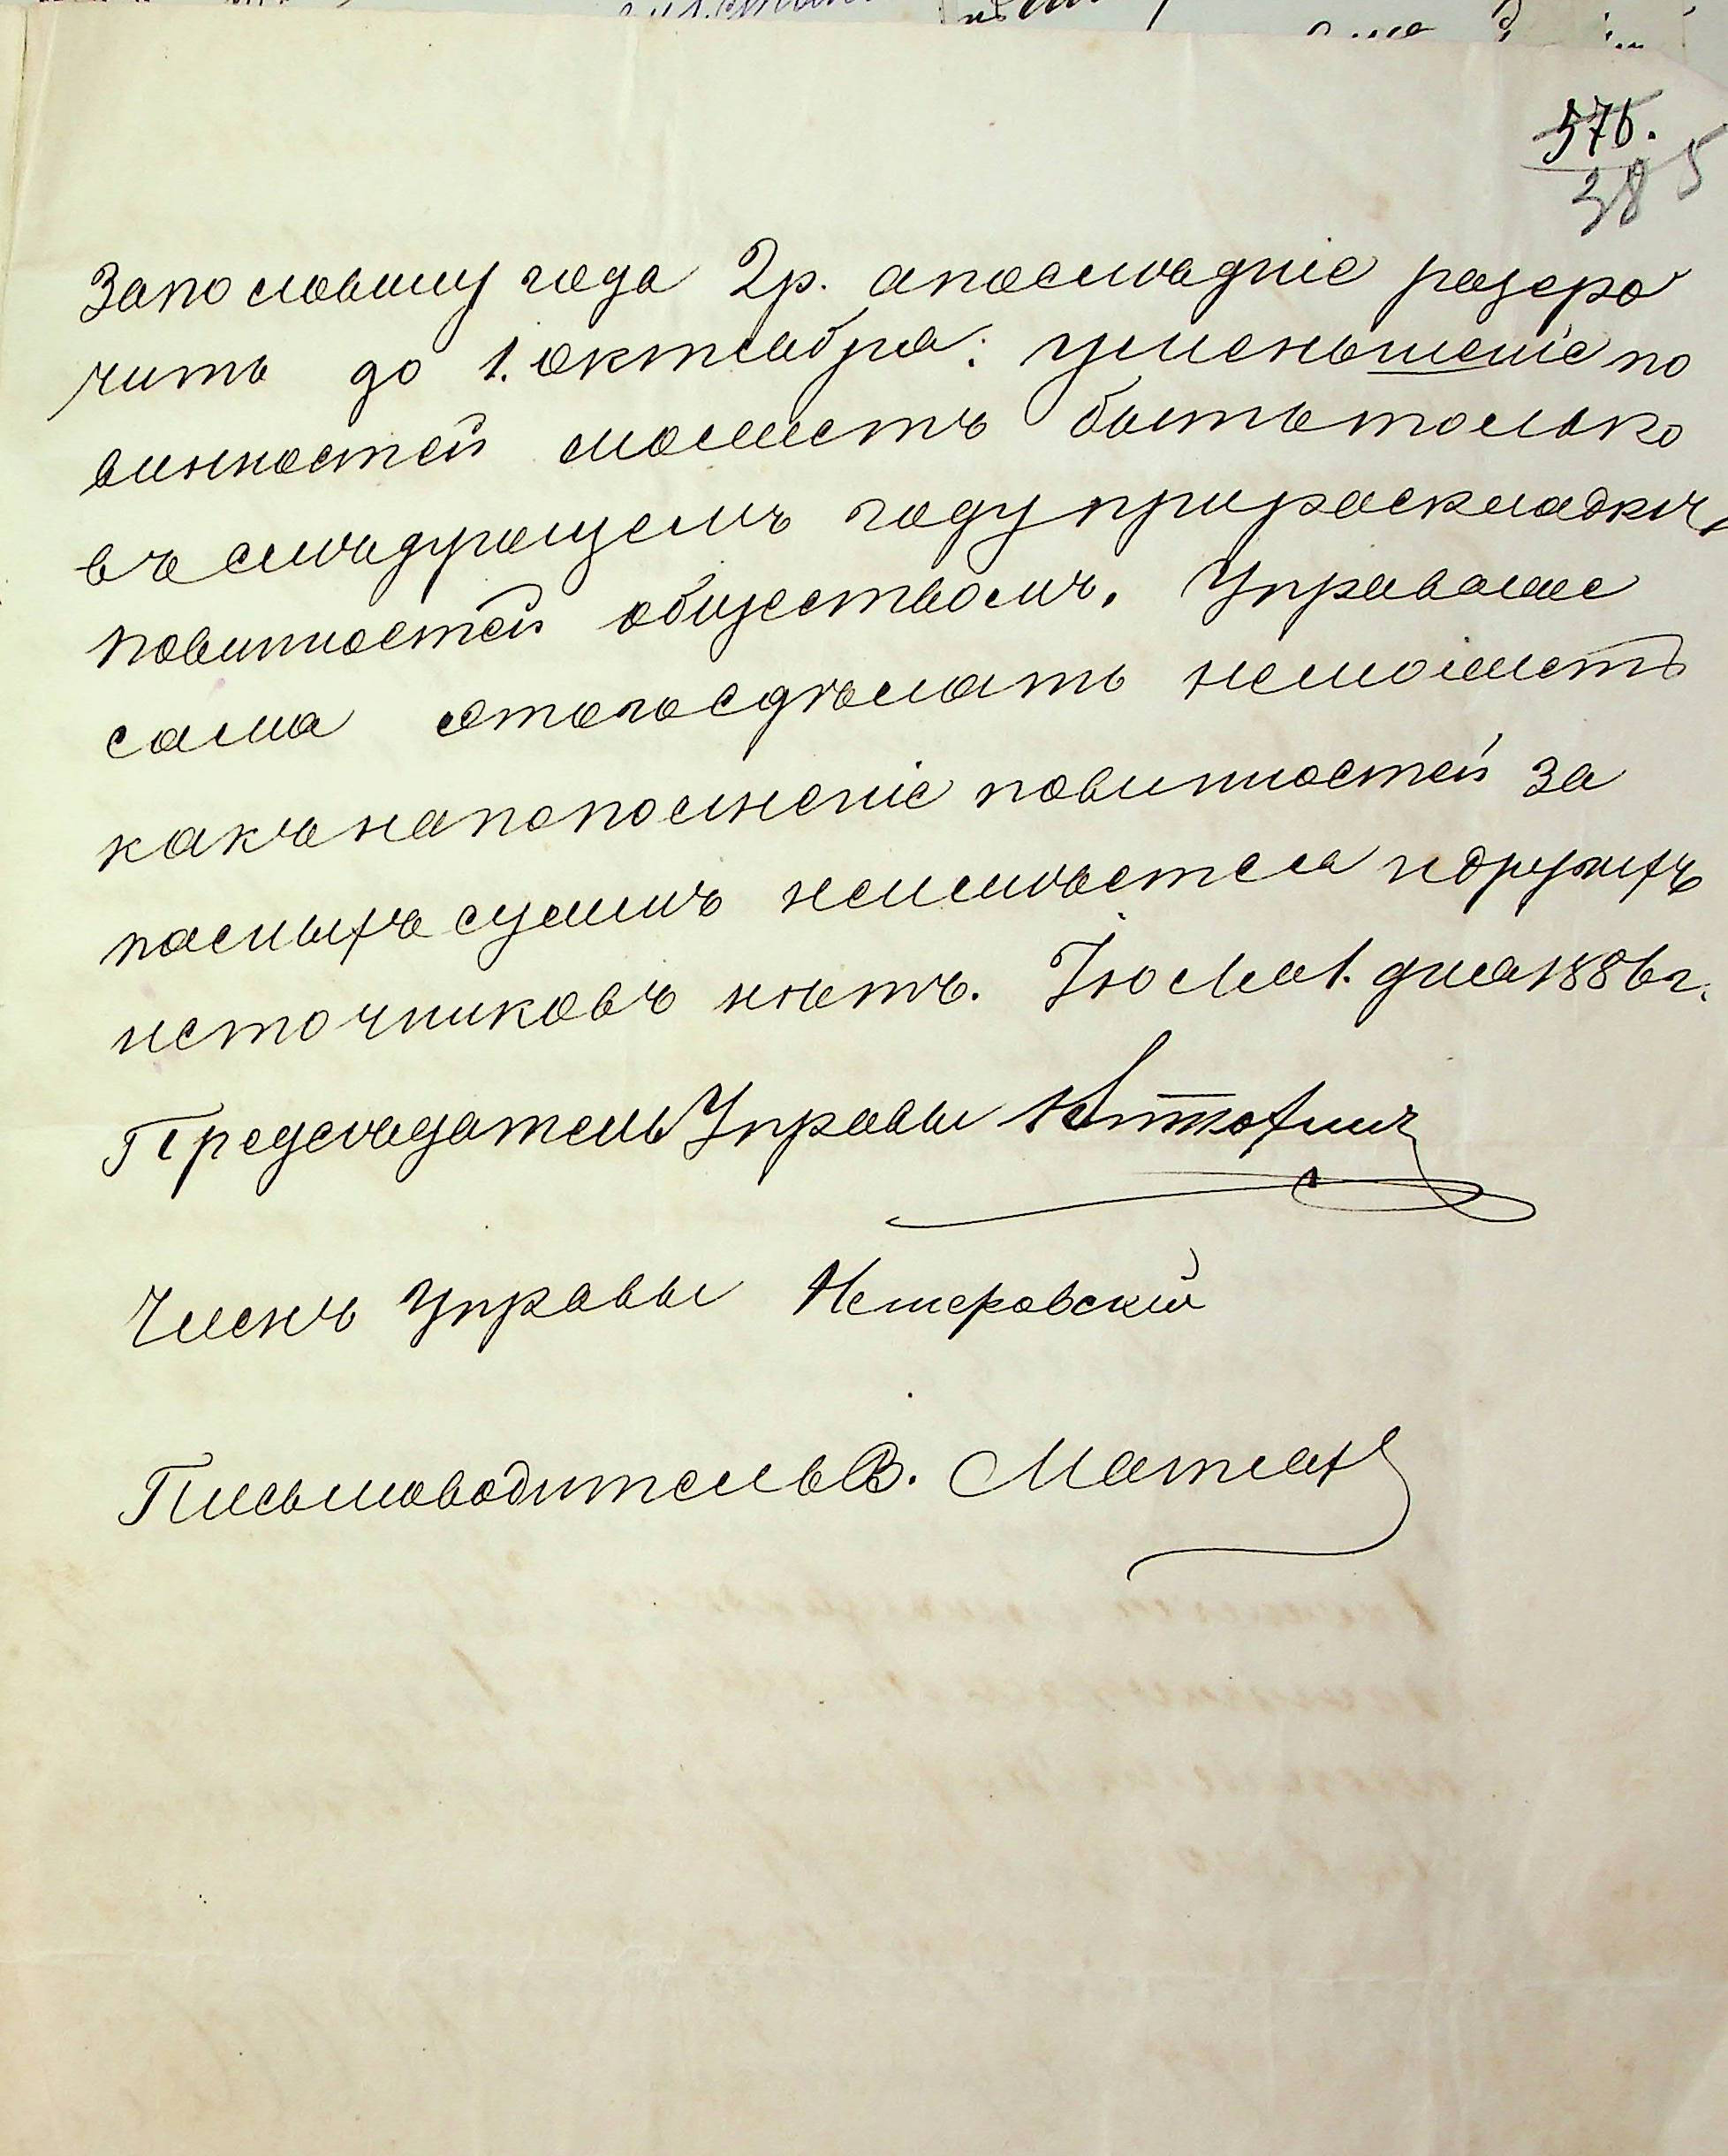 576.
385
За половину года 2р. а последніе разсро
чить до 1. октября: уменьшеніе по
винностей можетъ быть только
въ слѣдующемъ году при раскладкѣ
повинностей обществомъ. Управа же
сама этого сдѣлать не можетъ
какъ на пополненіе повинностей за
пасныхъ суммъ не имѣется и другихъ
источниковъ нѣтъ. Іюля 1. дня 1886 г.
Предсѣдатель Управы
Членъ Управы Нестеровскій
Письмоводитель В.